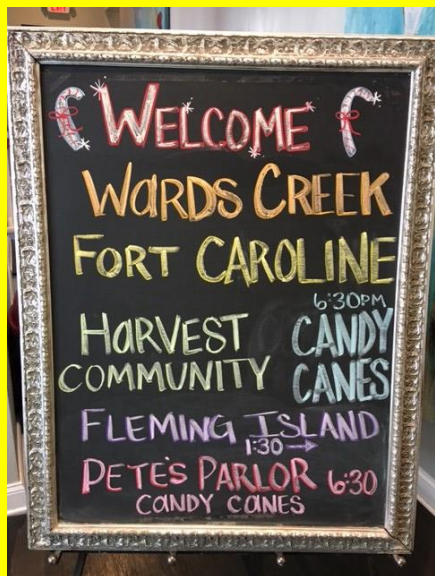 WELCOME
WARDS CREEK
FORT CAROLINE
6:30PM
HARVEST CANDY
COMMUNITY CANES
FLEMING ISLAND
1:30 →
PETE'S PARLOR 6:30
CANDY CANES